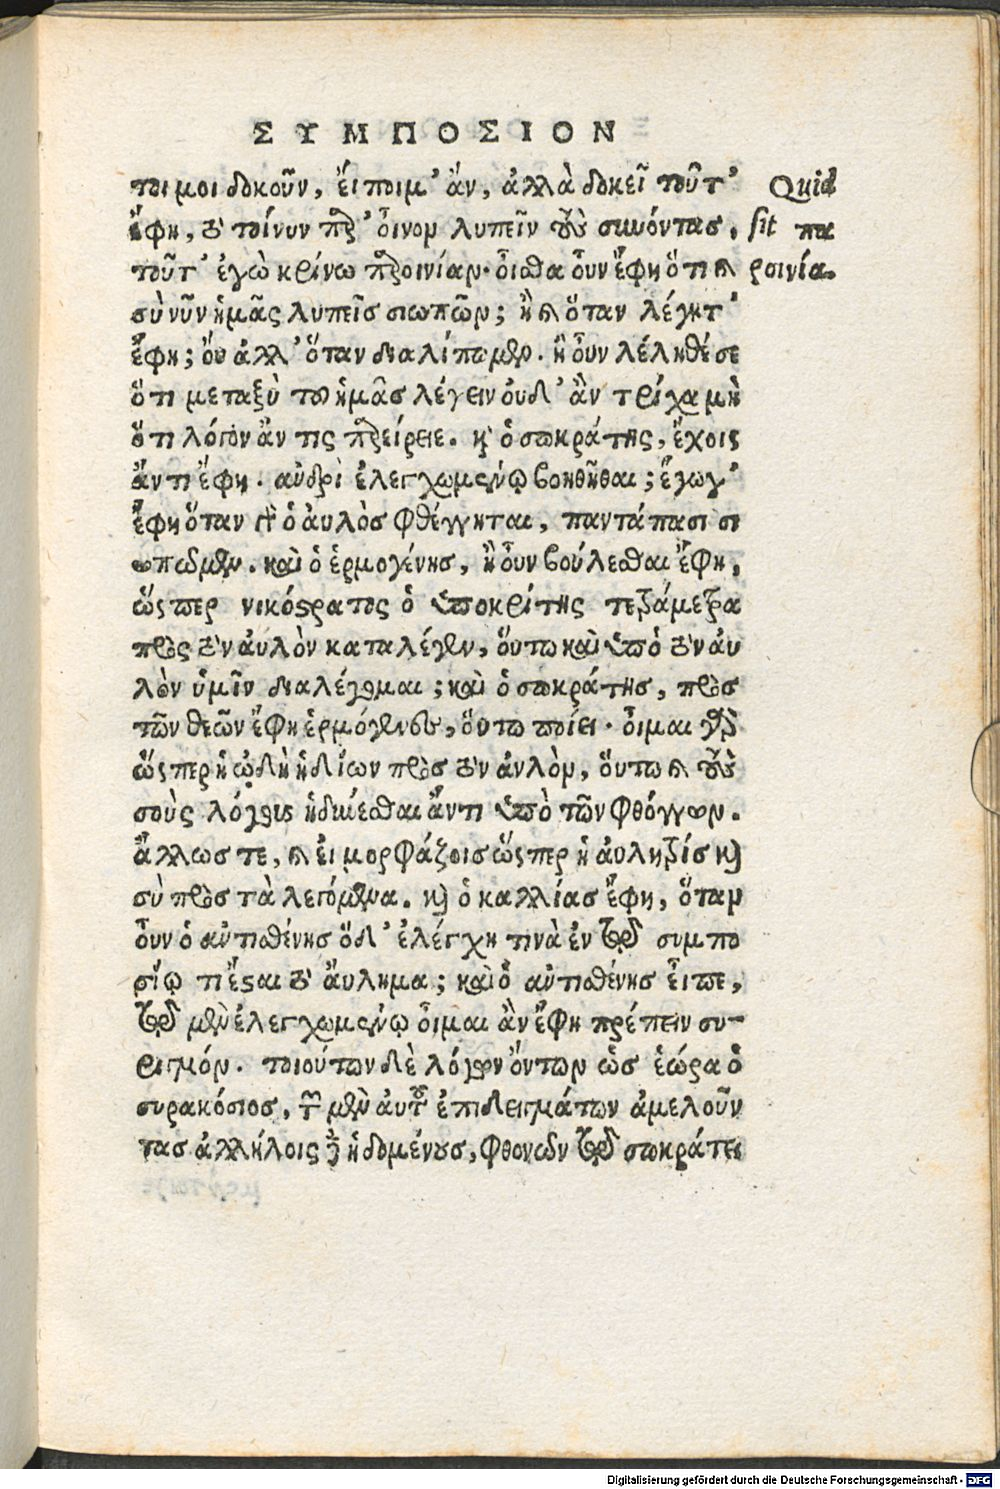 ΣΥΜΠΟΣΙΟΝ
τοι μοι δοκοῦν, εἴποιμ' ἄν, ἀλλὰ δοκεῖ τοῦτ' Quid
ἔφη, τὸ τοίνυν παρ' οἶνον λυπεῖν τοὺς συνόντας, sit πα
τοῦτ' ἐγὼ κρίνω παροινίαν. οἶσθα οὖν ἔφη ὅτι καὶ ροινία.
σὺ νῦν ἡμᾶς λυπεῖς σιωπῶν; ἦ καὶ ὅταν λέγητ'
ἔφη; οὐ ἀλλ' ὅταν διαλίπωμεν. ἦ οὖν λέληθέ σε
ὅτι μεταξὺ τοῦ ἡμᾶς λέγειν οὐδ' ἂν τρίχα μὴ
ὅτι λόγον ἄν τις παρείρειε. καὶ ὁ σωκράτης, ἔχοις
ἄν τι ἔφη. ἀνδρὶ ἐλεγχομένῳ βοηθῆσαι; ἔγωγ'
ἔφη ὅταν γὰρ ὁ αὐλὸς φθέγγηται, παντάπασι σι
ωπῶμεν. καὶ ὁ ἑρμογένης, ἦ οὖν βούλεσθαι ἔφη,
ὥσπερ νικόστρατος ὁ ὑποκριτής τετράμετρα
πρὸς τὸν αὐλὸν καταλέγεν, οὕτω καὶ ὑπὸ τὸν αὐ
λὸν ὑμῖν διαλέγομαι; καὶ ὁ σωκράτης, πρὸς
τῶν θεῶν ἔφη ἑρμόγενες, οὕτω ποίει. οἶμαι γὰρ
ὥσπερ ἡ ᾠδὴ ἡδίων πρὸς τὸν αὐλὸν, οὕτω καὶ τοὺς
σοὺς λόγους ἡδύνεσθαι ἄν τι ὑπὸ τῶν φθόγγων.
ἄλλως τε, καὶ εἰ μορφάζοις ὥσπερ ἡ αὐλητρίς καὶ
σὺ πρὸς τὰ λεγόμενα. καὶ ὁ καλλίας ἔφη, ὅταν
οὖν ὁ ἀντισθένης ὅδ' ἐλέγχη τινὰ ἐν τῷ συμπο
σίῳ τι ἔσται τὸ αὔλημα; καὶ ὁ ἀντισθένης εἶπε,
τῷ μὲν ἐλεγχομένῳ οἶμαι ἂν ἔφη πρέπειν συ-
ριγμόν. τοιούτων δὲ λόγων ὄντων ὡς ἑώρα ὁ
συρακόσιος, τῶν μὲν αὐτοῦ ἐπιδειγμάτων ἀμελοῦν
τας ἀλλήλοις δὲ ἡδομένους, φθονῶν τῷ σωκράτει
Digitalisierung gefördert durch die Deutsche Forschungsgemeinschaft - DFG